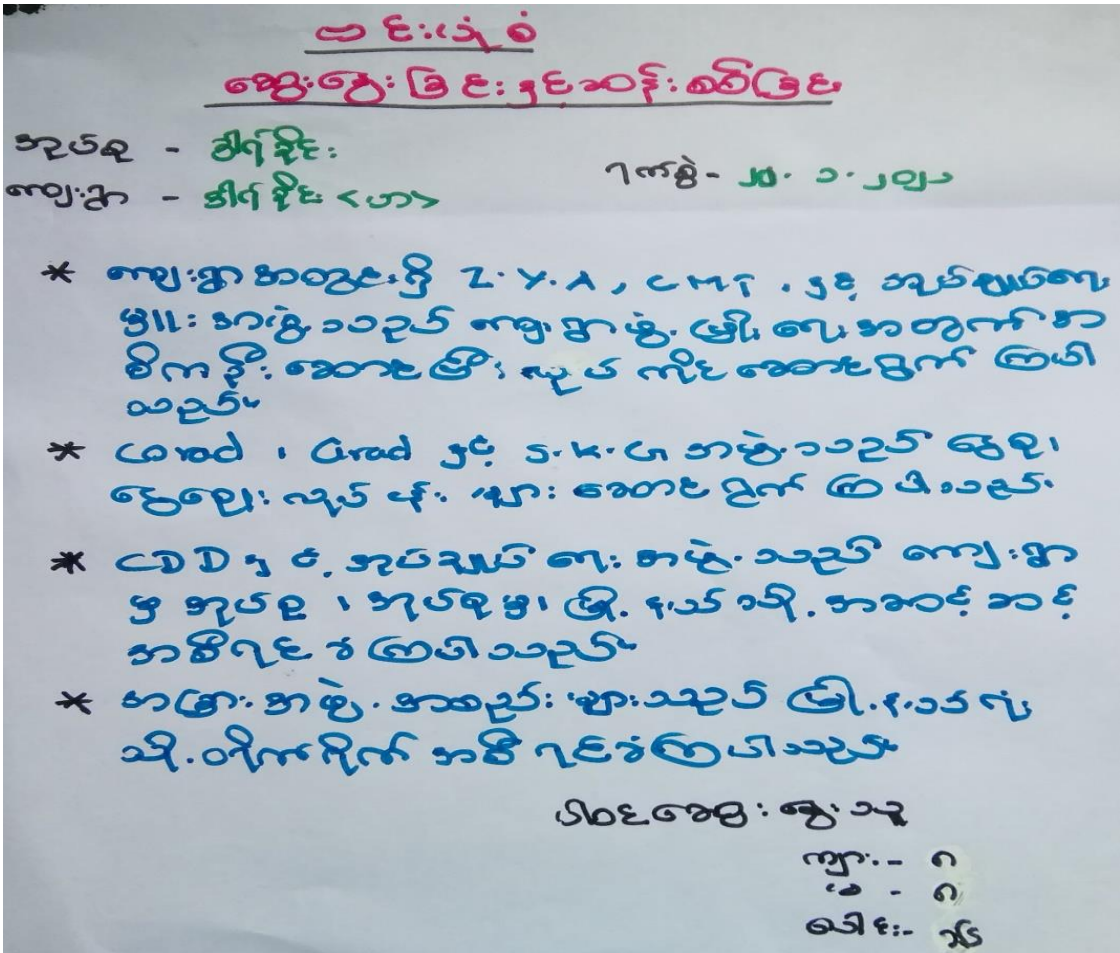 ဗင်းပုံစံ
ဆွေးနွေးခြင်းနှင့်ဆန်းစစ်ခြင်း
အုပ်စု - ဒါရ်ခိုင်း
ရက်စွဲ - ၂၅.၁.၂၀၂၁
ကျေးရွာ - ဒါရ်ခိုင်း <ဟာ>
* ကျေးရွာအတွင်းရှိ Z.Y.A, CMT, နှင့် အုပ်ချုပ်ရေး
မှူးအဖွဲ့သည် ကျေးရွာဖွံ့ဖြိုးရေးအတွက် အ
ဓိကဦးဆောင်ပြီး လုပ်ကိုင်ဆောင်ရွက်ကြပါ
သည်။
* Corad ၊ Grad နှင့် S.K.G အဖွဲ့သည် ငွေစု၊
ငွေချေးလုပ်ငန်းများဆောင်ရွက်ကြပါသည်။
* CDD နှင့် အုပ်ချုပ်ရေးအဖွဲ့သည် ကျေးရွာ
မှ အုပ်စု ၊ အုပ်စုမှ၊ မြို့နယ်သို့ အဆင့်ဆင့်
အစီရင်ခံကြပါသည်။
* အခြားအဖွဲ့အစည်းများသည် မြို့နယ်ရုံး
သို့ တိုက်ရိုက် အစီရင်ခံကြပါသည်။
ပါဝင်ဆွေးနွေးသူ
ကျား - ၈
မ - ၈
ပေါင်း - ၁၆